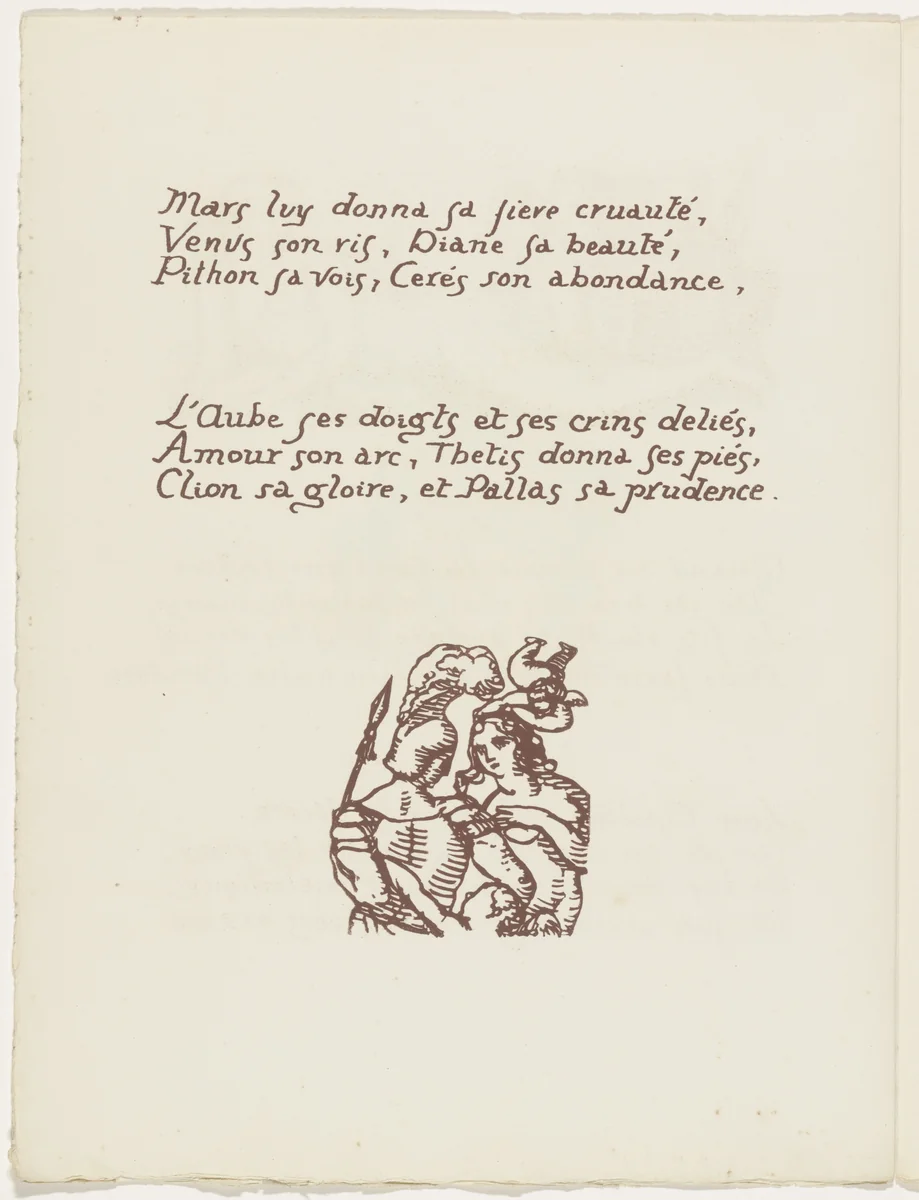 Mars luy donna sa fiere cruauté,
Venus son ris, Diane sa beauté,
Pithon sa vois, Cerés son abondance,
L'Aube ses doigts et ses crins deliés,
Amour son arc, Thetis donna ses piés,
Clion sa gloire, et Pallas sa prudence.